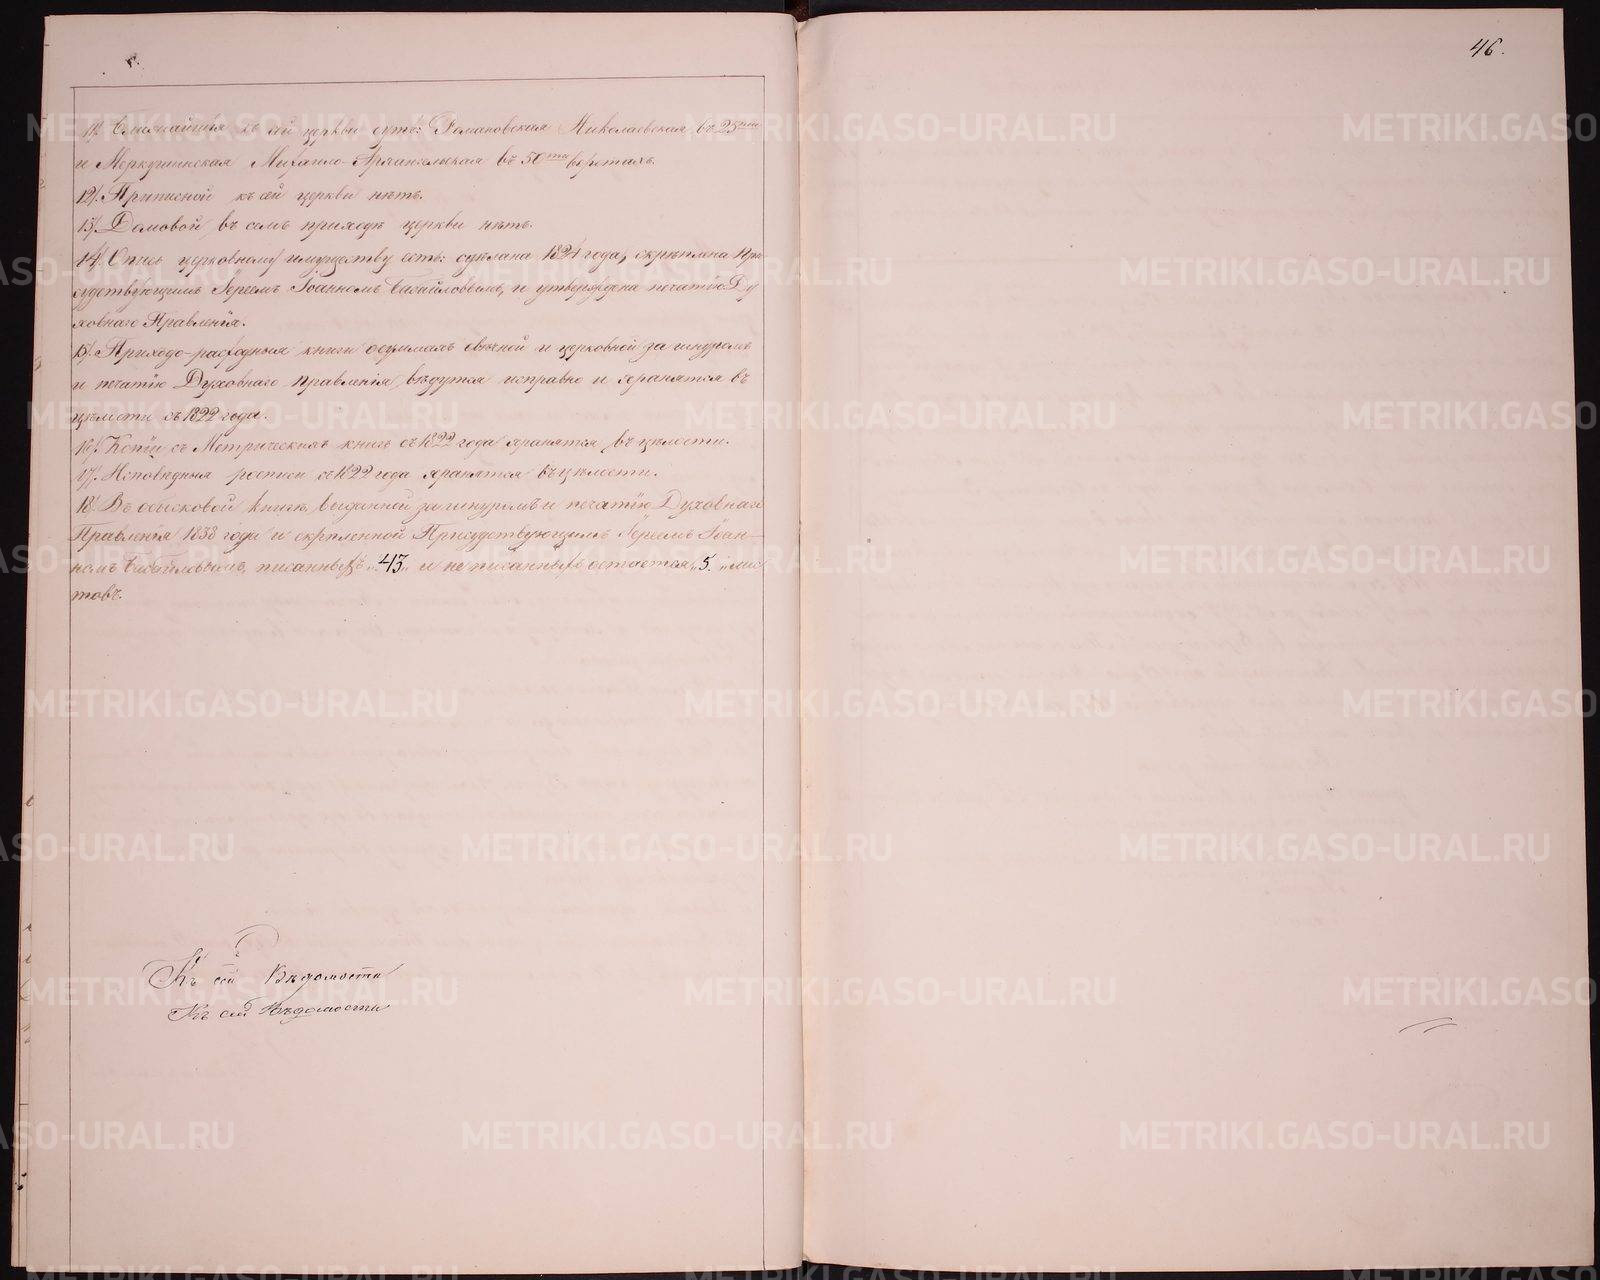 46.
11/. Ближайшія къ сей церкви суть: Романовская Николаевская въ 25ти
и Меркушинская Михаило-Архангельская въ 50ти верстахъ.
12/. Приписной къ сей церкви нѣтъ.
13/. Домовой въ семъ приходѣ церкви нѣтъ.
14/. Опись церковному имуществу есть: сдѣлана 1824 года, скрѣплена При
судствующимъ Іереемъ Іоанномъ и утверждена печатію Ду
ховнаго Правленія.
15/. Приходо-расходныя книги свѣчной и церковной за шнуромъ
и печатію Духовнаго правленія, ведутся исправно и хранятся въ
цѣлости съ 1822 года.
16/. Копіи съ Метрическихъ книгъ съ 1822 года хранятся въ цѣлости.
17/. Исповѣдныя росписи съ 1822 года хранятся въ цѣлости.
18/. Въ обысковой книгѣ, выданной за шнуромъ и печатію Духовнаго
Правленія 1838 года и скрѣпленной Присудствующимъ Іереемъ Іоан-
номъ писанныхъ „43„ и не писанныхъ остается „5.„ лис
товъ.
Къ сей Вѣдомости
Къ сей Вѣдомости
METRIKI.GASO-URAL.RU